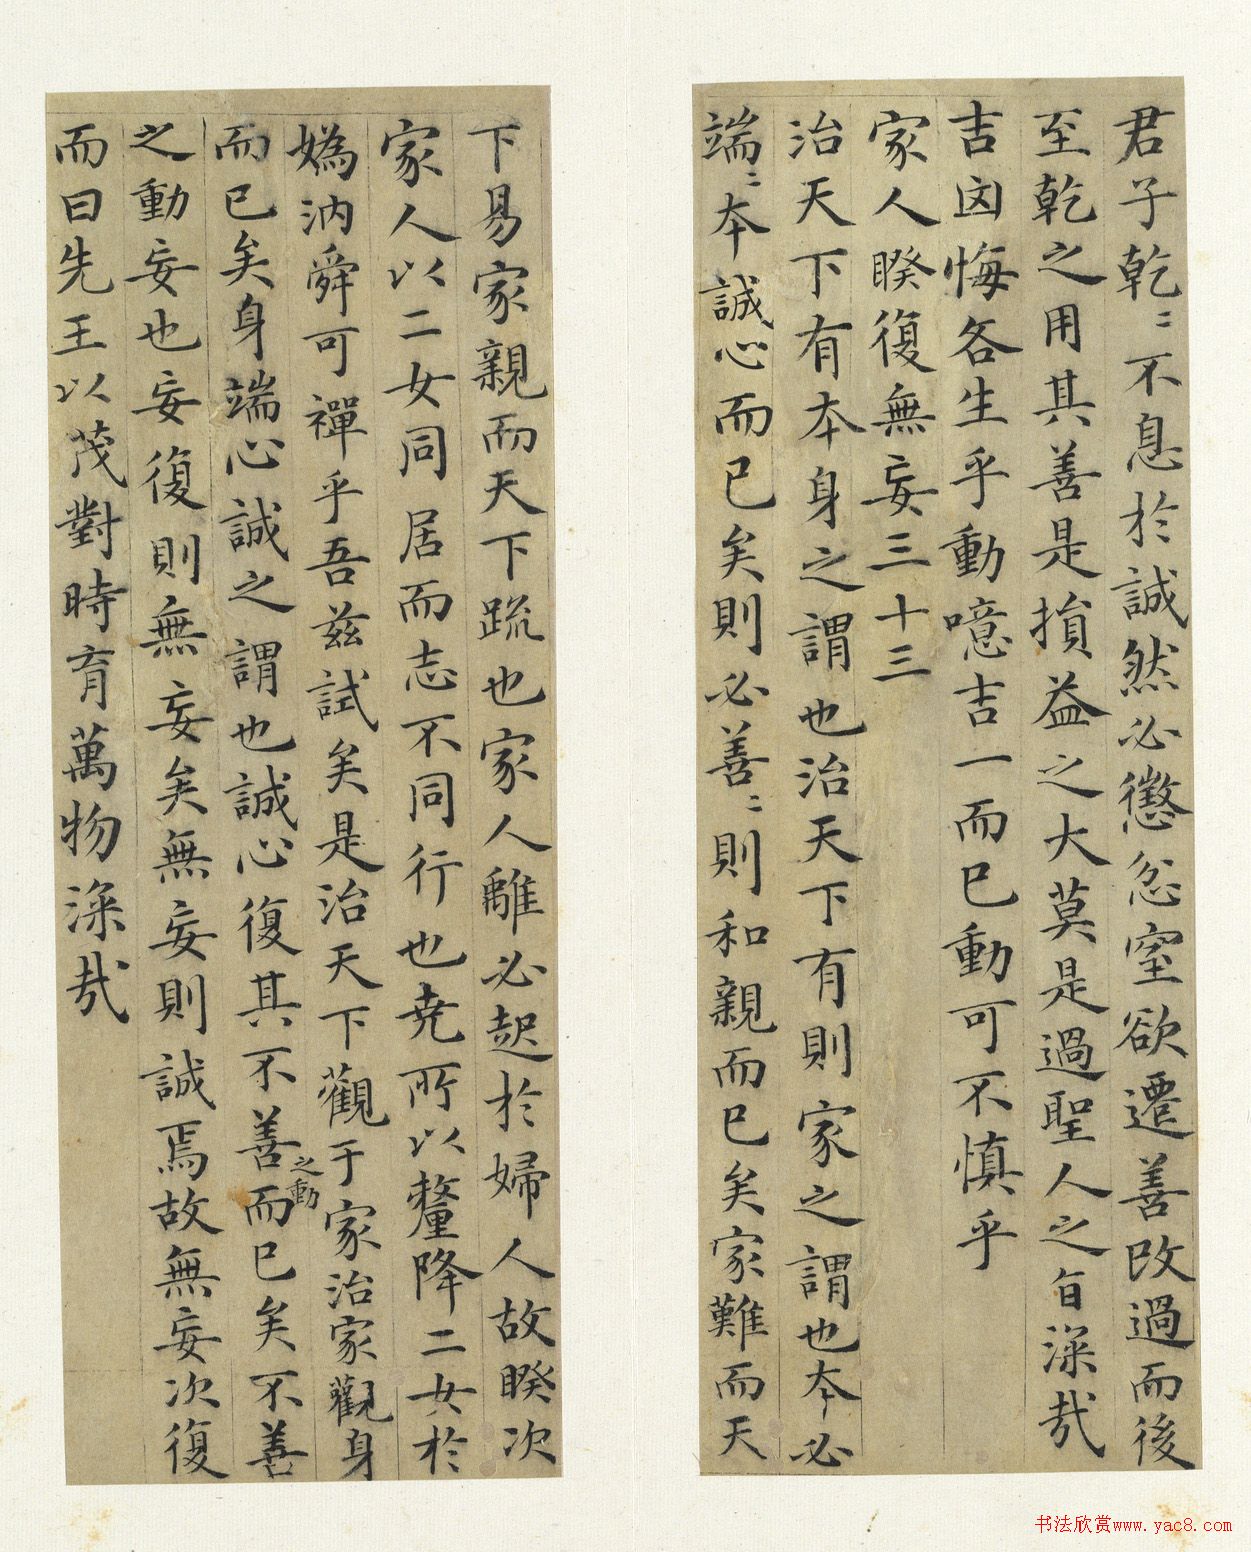 君子乾〻不息於誠然必懲忿窒欲遷善改過而後
至乾之用其善是損益之大莫是過聖人之旨深哉
吉凶悔吝生乎動噫吉一而已動可不慎乎
家人睽復無妄三十三
治天下有本身之謂也治天下有則家之謂也本必
端〻本誠心而已矣則必善〻則和親而已矣家難而天
下易家親而天下疏也家人離必起於婦人故睽次
家人以二女同居而志不同行也堯所以釐降二女於
媯汭舜可禪乎吾茲試矣是治天下觀于家治家觀身
而已矣身端心誠之謂也誠心復其不善之動而已矣不善
之動妄也妄復則無妄矣無妄則誠焉故無妄次復
而曰先王以茂對時育萬物深哉
书法欣赏www.yac8.com